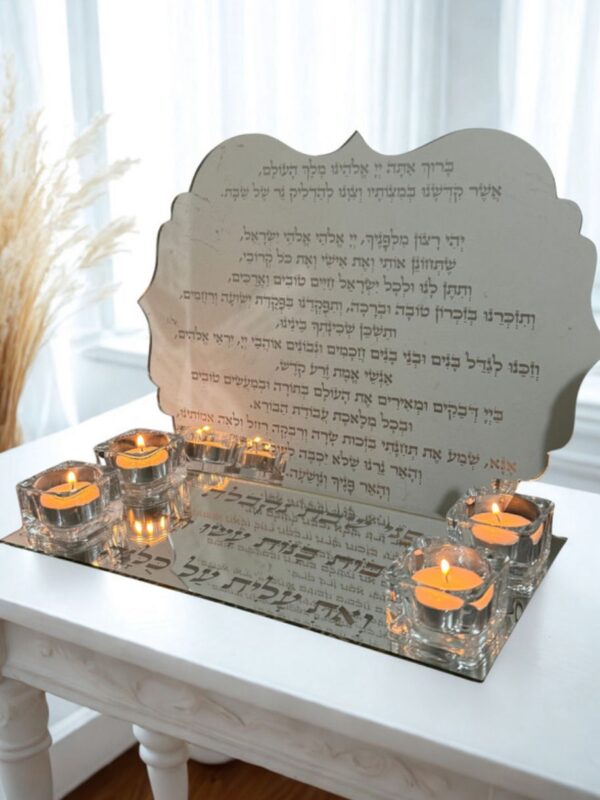 ברוך אתה יי אלהינו מלך העולם,
אשר קדשנו במצותיו וצונו להדליק נר של שבת.
יהי רצון מלפניך, יי אלהי אלהי ישראל,
שתחונן אותי ואת אישי ואת כל קרובי,
ותתן לנו ולכל ישראל חיים טובים וארכים,
ותזכרנו בזכרון טובה וברכה, ותפקדנו בפקדת ישועה ורחמים,
ותשכן שכינתך בינינו,
וזכנו לגדל בנים ובני בנים חכמים ונבונים אוהבי יי, יראי אלהים,
אנשי אמת זרע קדש,
ביי דבקים ומאירים את העולם בתורה ובמעשים טובים
ובכל מלאכת עבודת הבורא.
אנא, שמע את תחנתי בזכות שרה ורבקה רחל ולאה אמותינו,
והאר נרנו שלא יכבה לעולם
והאר פניך ונושעה.
רבות בנות עשו חיל
ואת עלית על כלנה